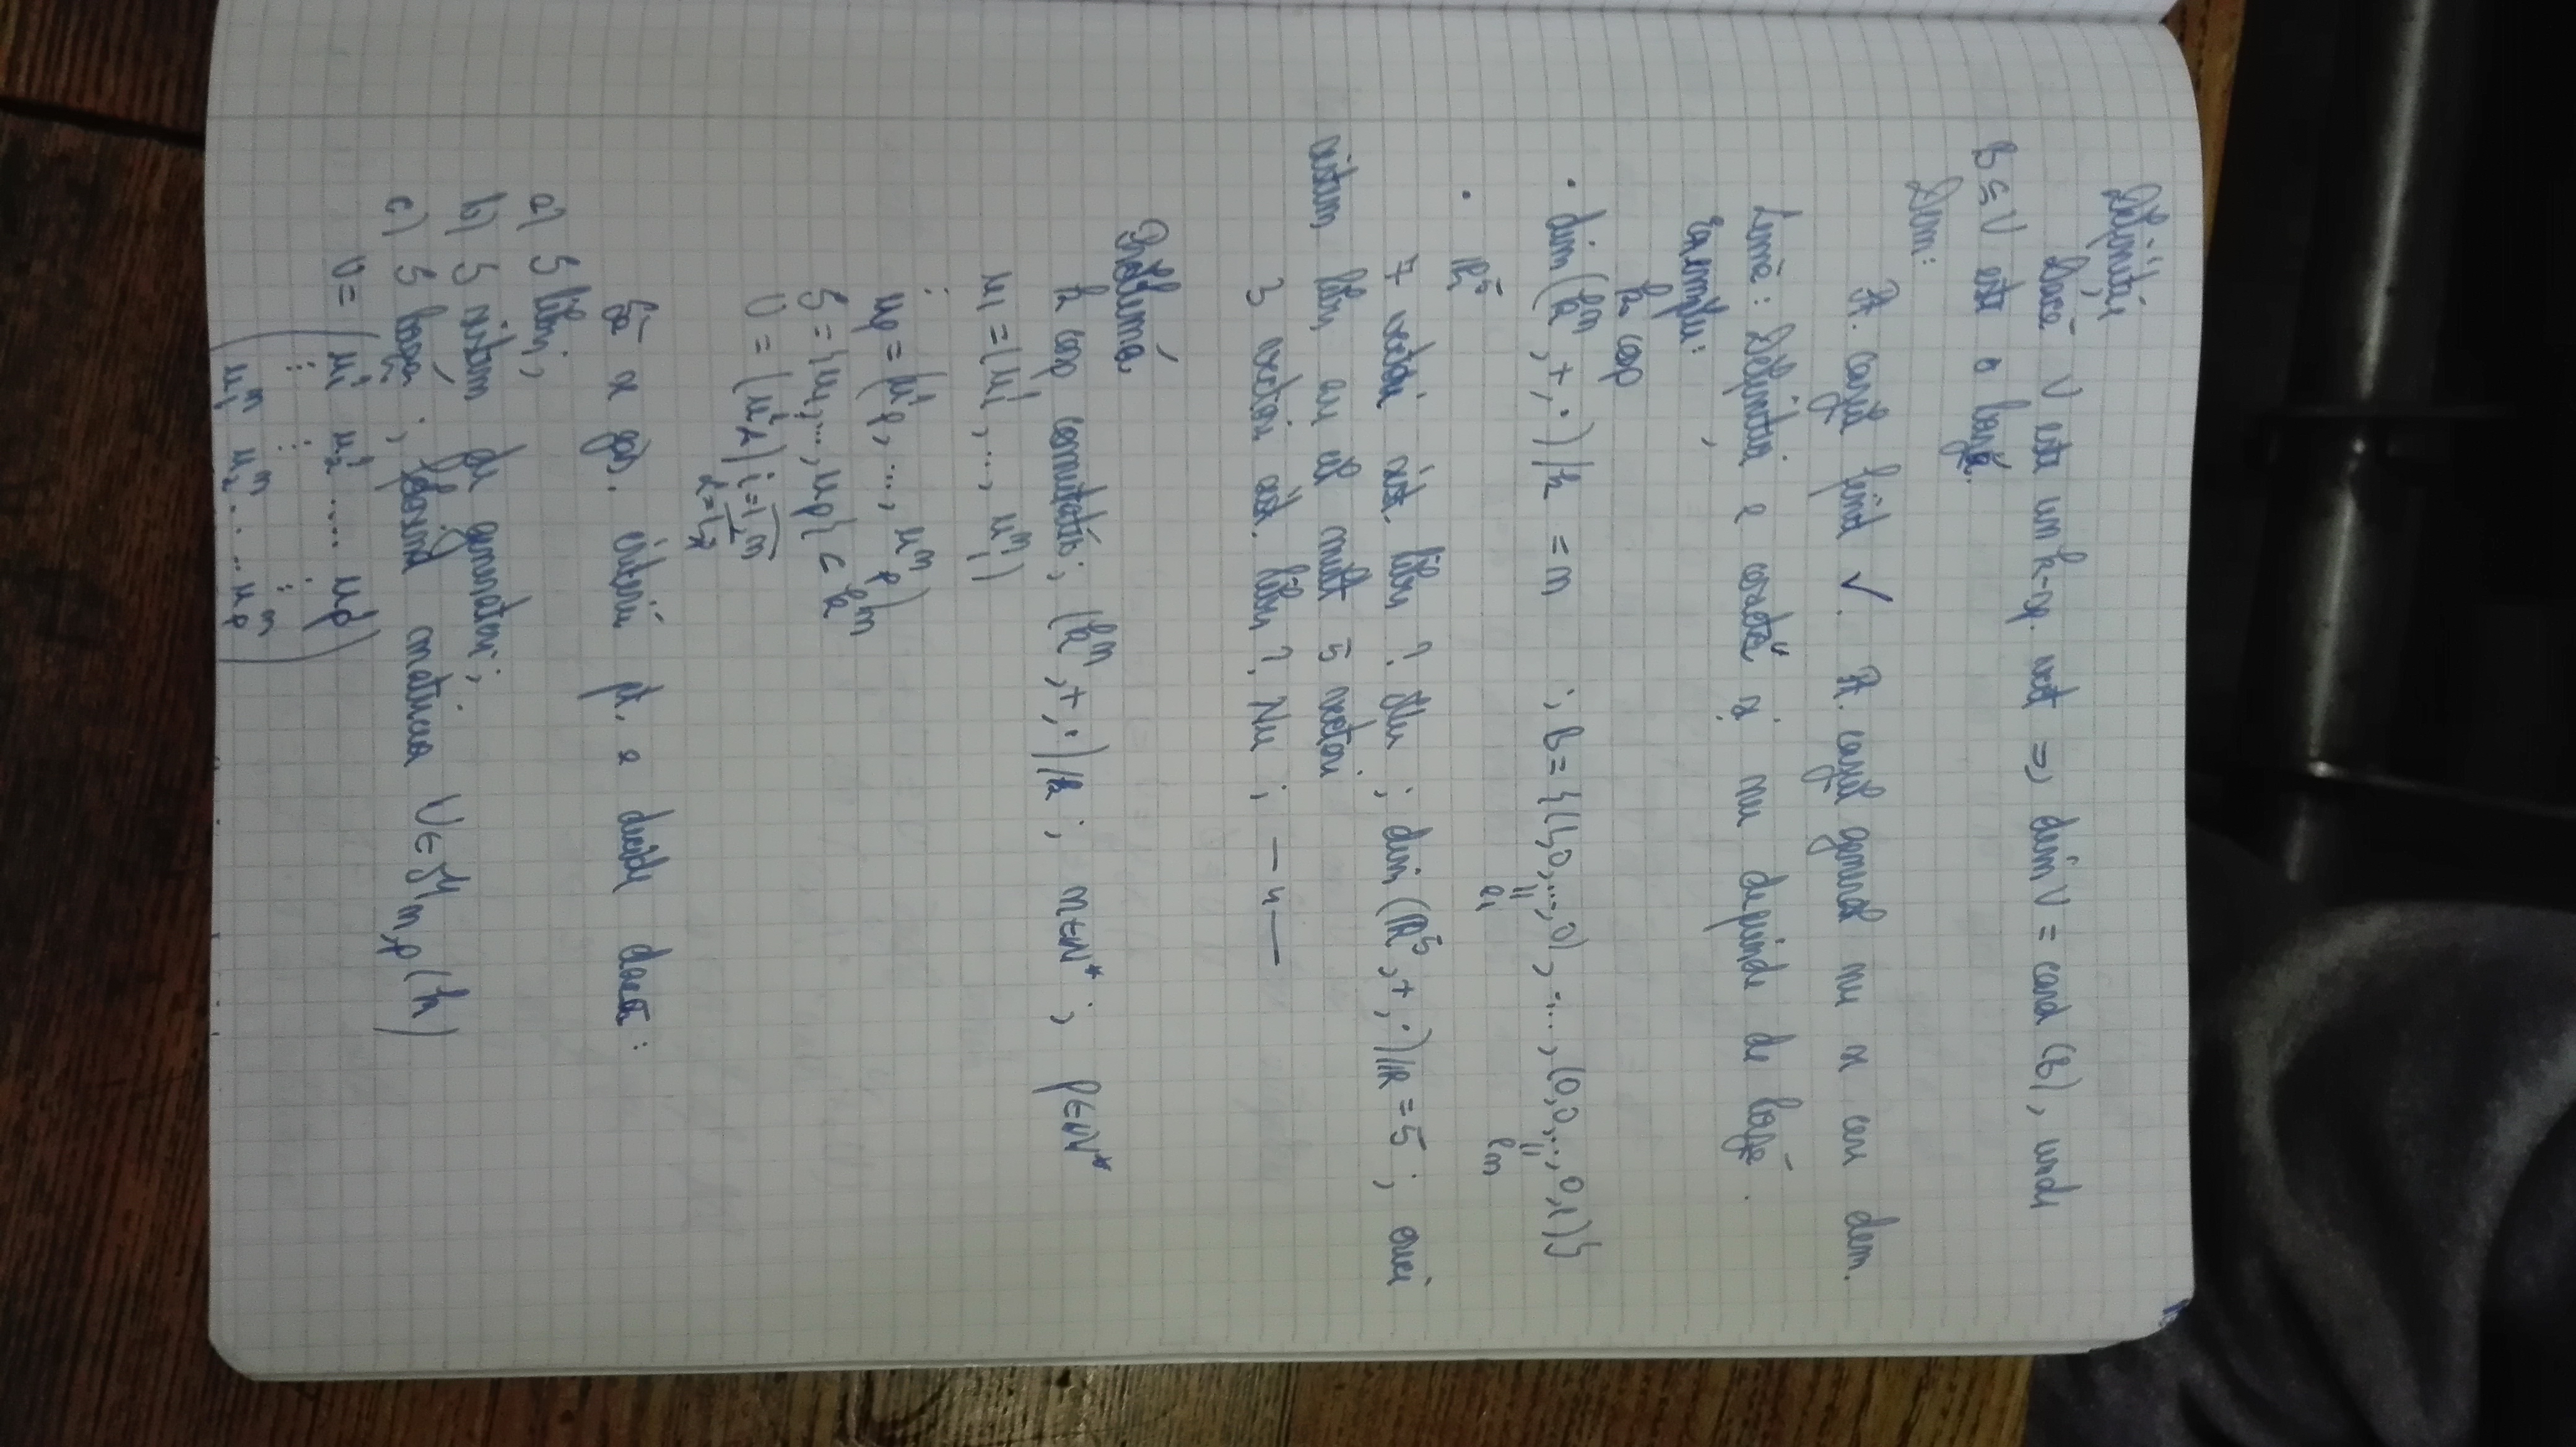 Definiție
Dacă V este un k-sp. vect => dim V = card (B), unde
B ⊆ V este o bază.
Dem:
Pt. cazul finit ✓. Pt. cazul general nu se cere dem.
Lema: Definiția e corectă și nu depinde de bază.
Exemplu:
k corp
• dim (kⁿ, +, ·)/k = n ; B = {(1,0,...,0), ..., (0,0,...,0,1)}
e₁ eₙ
• ℝ⁵
7 vectori sist. liber ? Nu ; dim (ℝ⁵, +, ·)/ℝ = 5 ; orice
sistem liber are cel mult 5 vectori
3 vectori sist. liber ? Nu ; — " —
Problemă
k corp comutativ ; (kⁿ, +, ·)/k ; n ∈ ℕ* ; p ∈ ℕ*
u₁ = (u₁¹, ..., u₁ⁿ)
⋮
uₚ = (uₚ¹, ..., uₚⁿ)
S = {u₁, ..., uₚ} ⊂ kⁿ
U = (uⁱ) i = 1,n
Să se găs. criterii pt. a decide dacă :
a) S liber ;
b) S sistem de generatori ;
c) S bază ; folosind matricea U ∈ ℳn,p (k)
U = (u₁¹ u₂¹ ..... uₚ¹)
⋮ ⋮ ⋮
u₁ⁿ u₂ⁿ .... uₚⁿ